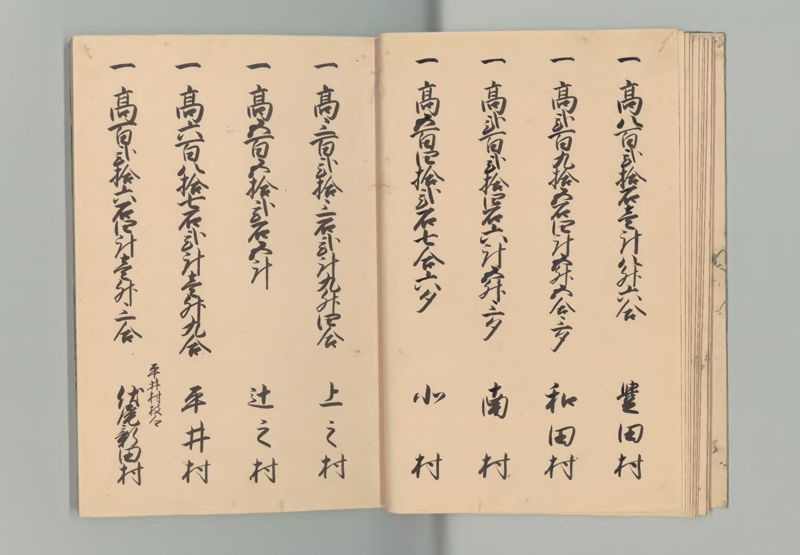 一 髙八百弐拾石壱斗八升六合 豊田村
一 髙弐百九拾五石四斗五升五合三夕 和田村
一 髙弐百弐拾四石六斗五升三夕 南村
一 髙五百四拾弐石七合六夕 北村
一 髙三百弐拾三石弐斗九升四合 上之村
一 髙五百五拾弐石五斗 辻之村
一 髙六百八拾七石弐斗壱升九合 平井村
平井村枝郷
一 髙百弐拾六石四斗壱升三合 伏尾新田村